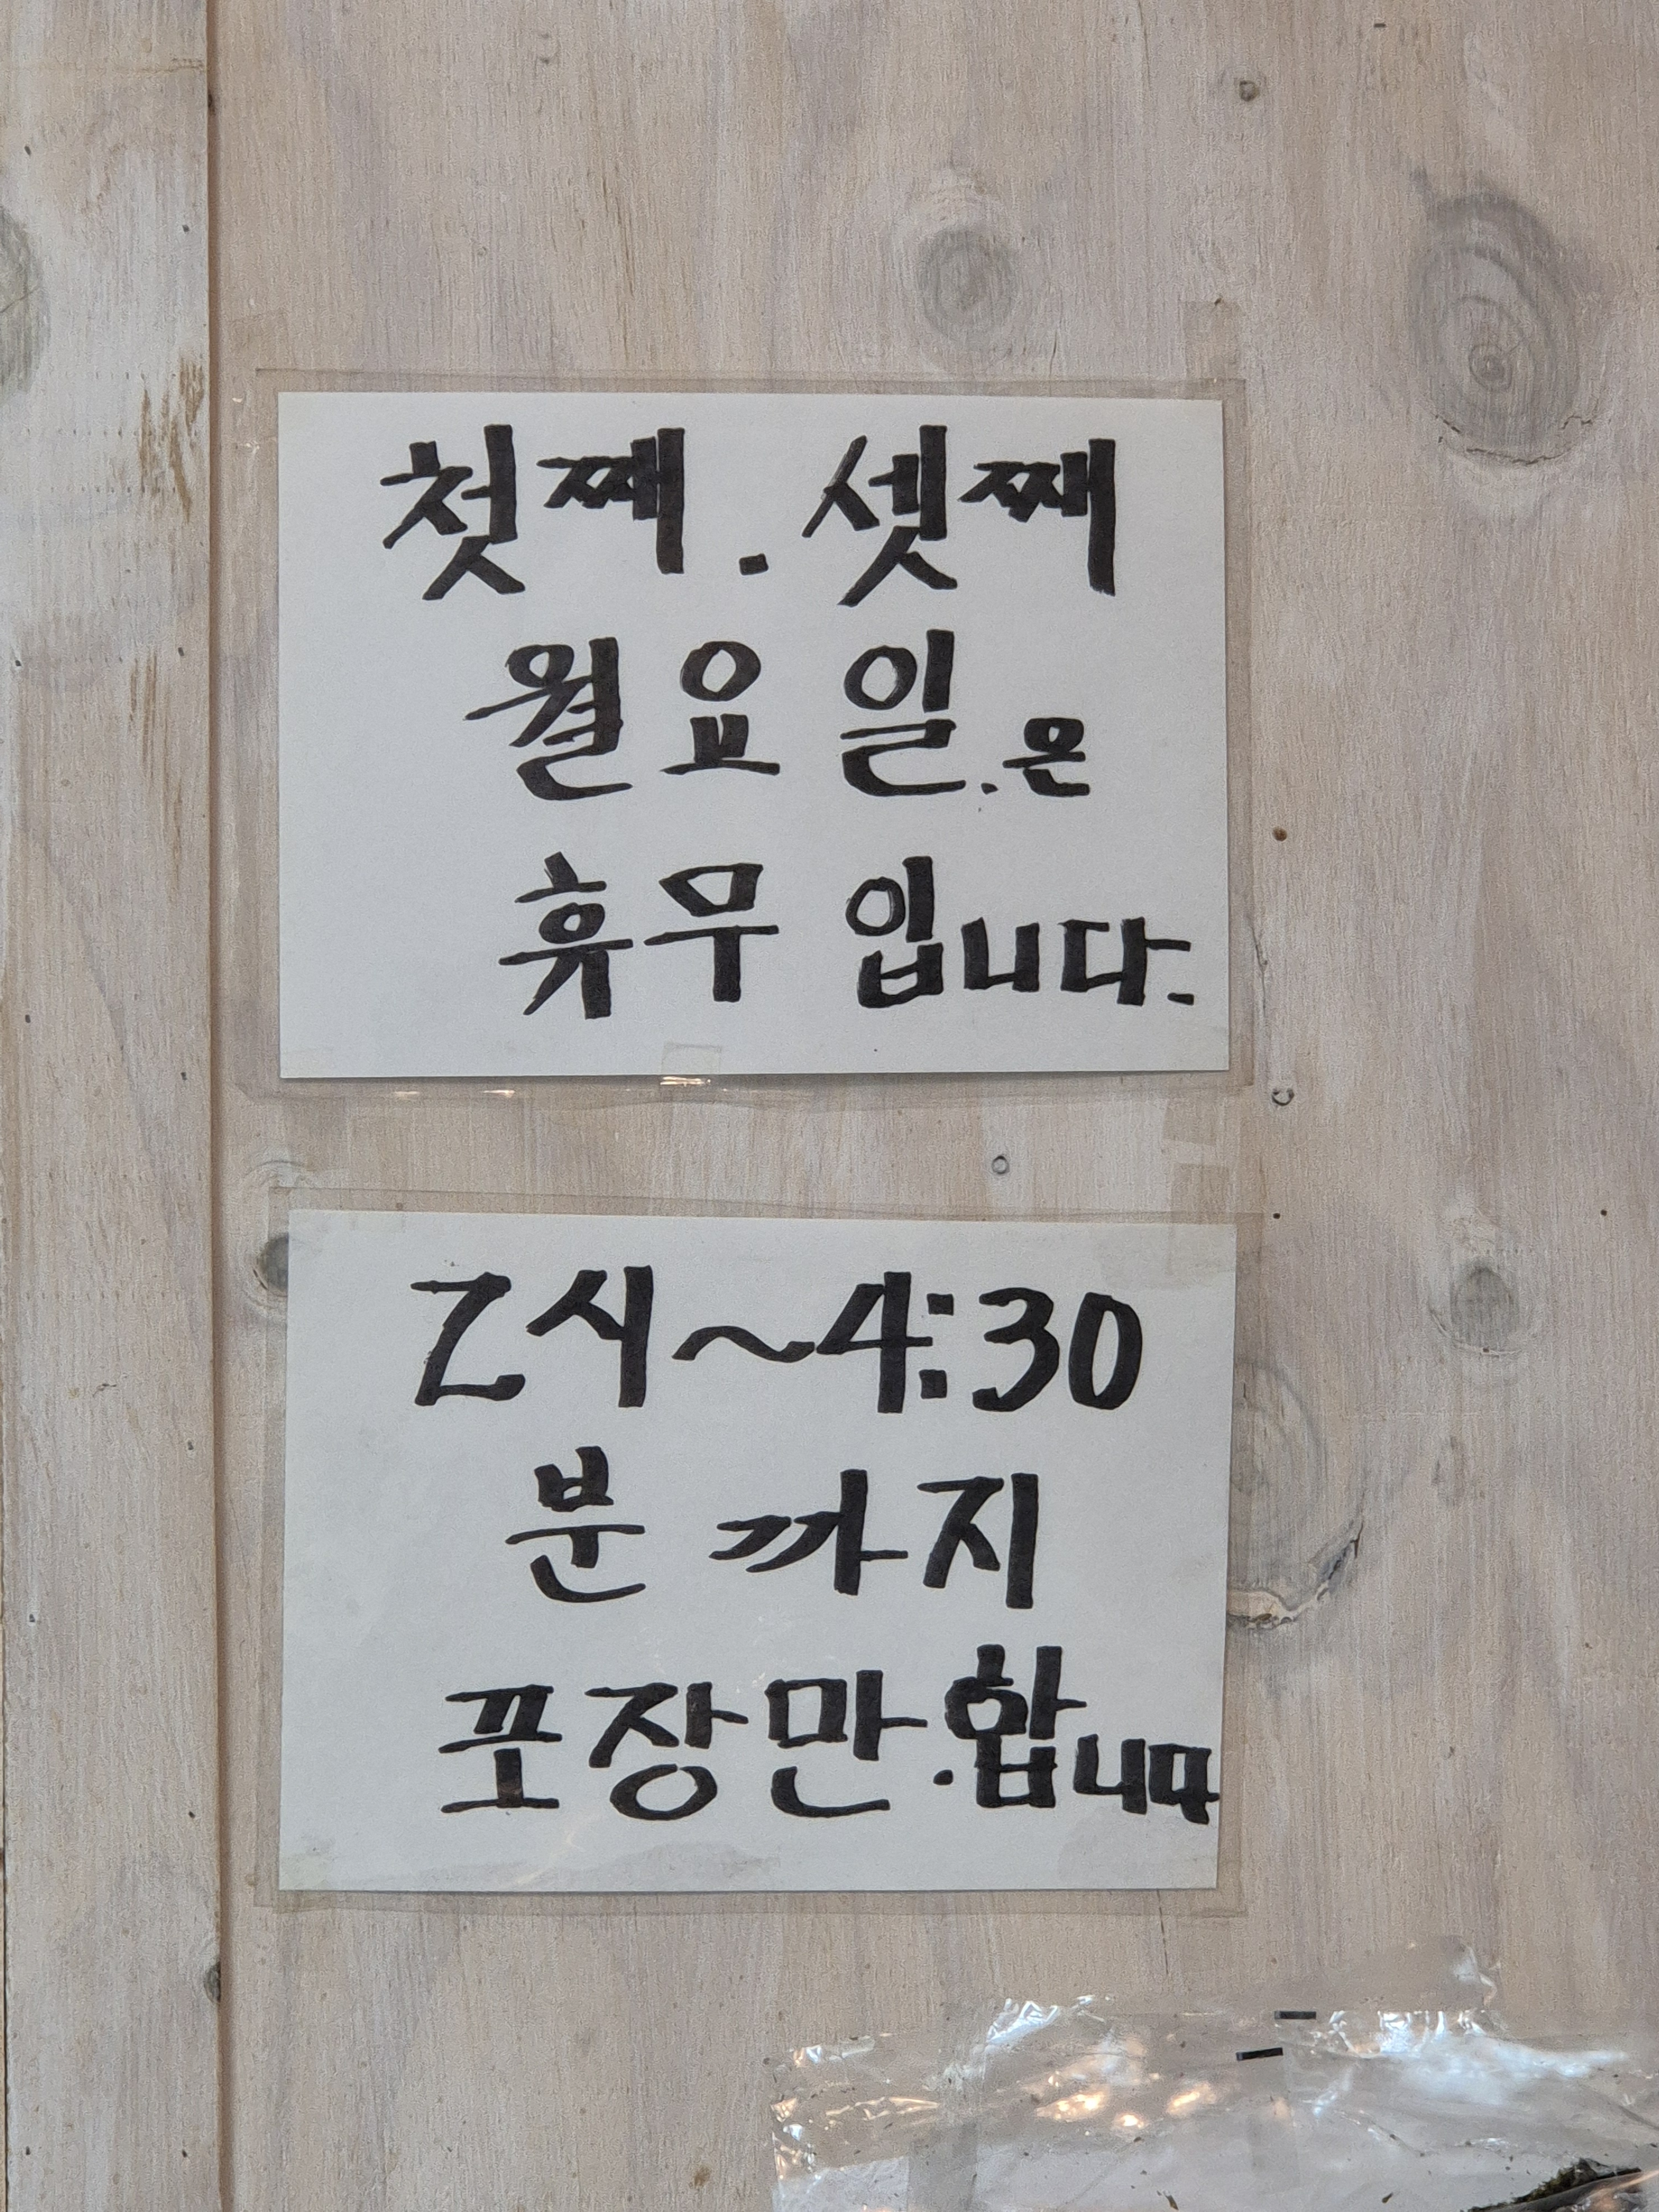 첫째. 셋째
월요일.은
휴무 입니다.
2시~4:30
분 까지
포장만.합니다